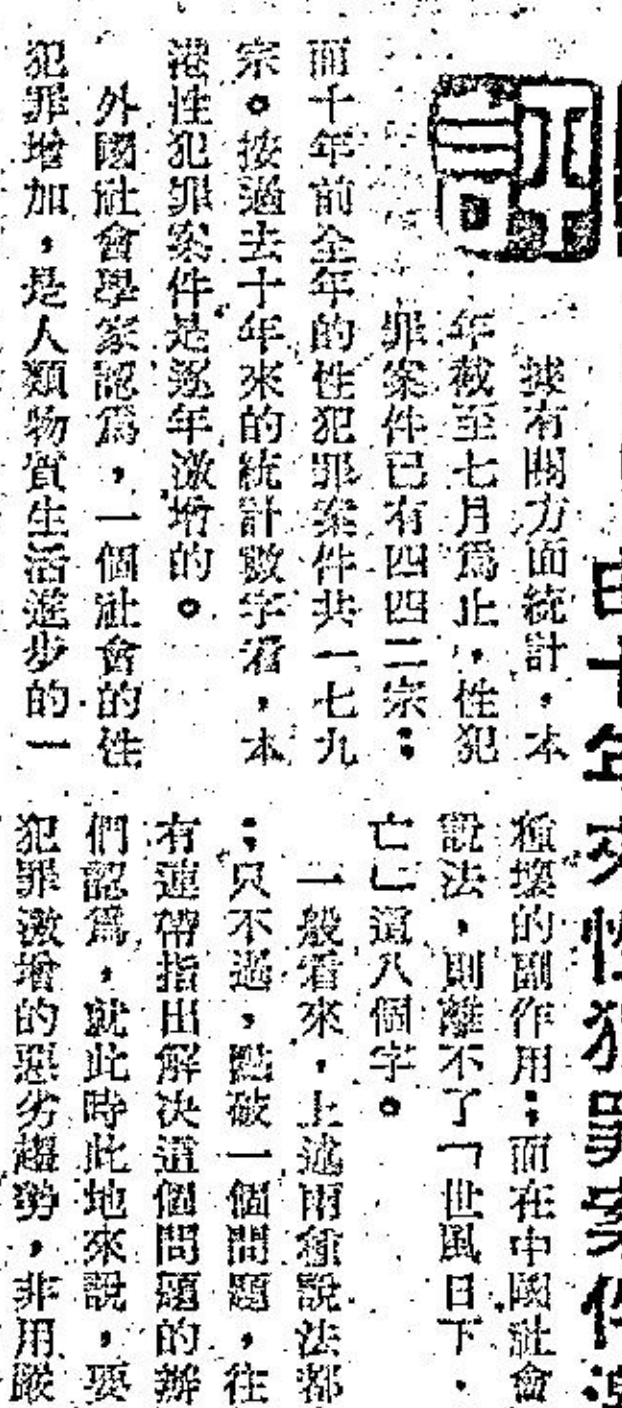 評
由十年來性犯罪案件激
據有關方面統計，本
年截至七月爲止，性犯
罪案件已有四四二宗；
而十年前全年的性犯罪案件共一七九
宗。按過去十年來的統計數字看，本
港性犯罪案件是逐年激增的。
外國社會學家認爲，一個社會的性
犯罪增加，是人類物質生活進步的一
種壞的副作用；而在中國社會
說法，則離不了「世風日下，
亡」這八個字。
一般看來，上述兩種說法都
；只不過，點破一個問題，往
有連帶指出解決這個問題的辦
們認爲，就此時此地來說，要
犯罪激增的惡劣趨勢，非用嚴